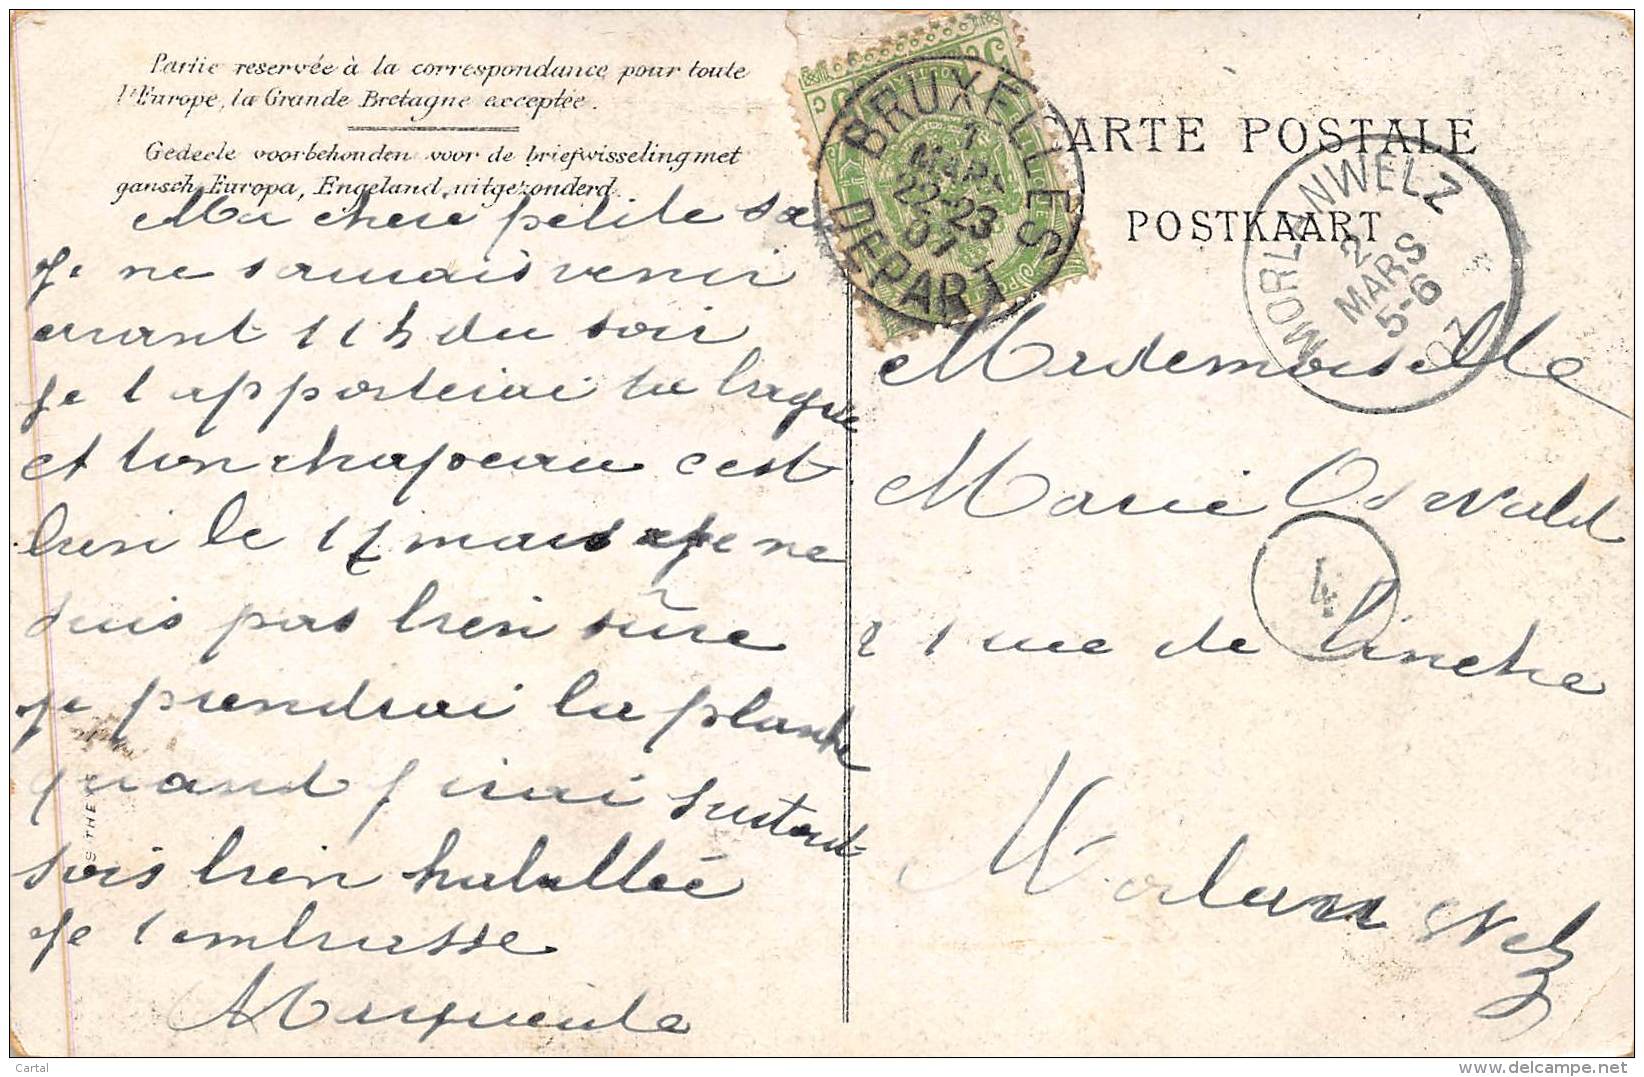 Partie reservée à la correspondance pour toute
l'Europe, la Grande Bretagne exceptée.
Gedeele voorbehonden voor de briefwisseling met
gansch Europa, Engeland uitgezonderd.
CARTE POSTALE
POSTKAART
BRUXELLES
1
MARS
22-23
07
DEPART
MORLANWELZ
2
MARS
5-6
07
Ma chere petite
je ne samais venir
avant 11 h du soir
je t apporterai ta bague
et ton chapeau c est
bien le 17 mars je ne
suis pas bien sûre
je prendrai la planche
quand j irai surtout
sois bien habillée
je t embrasse
Marguerite
Mademoiselle
Marie Oswald
4
21 rue de Binche
Morlanwelz
S THE
Cartal
www.delcampe.net